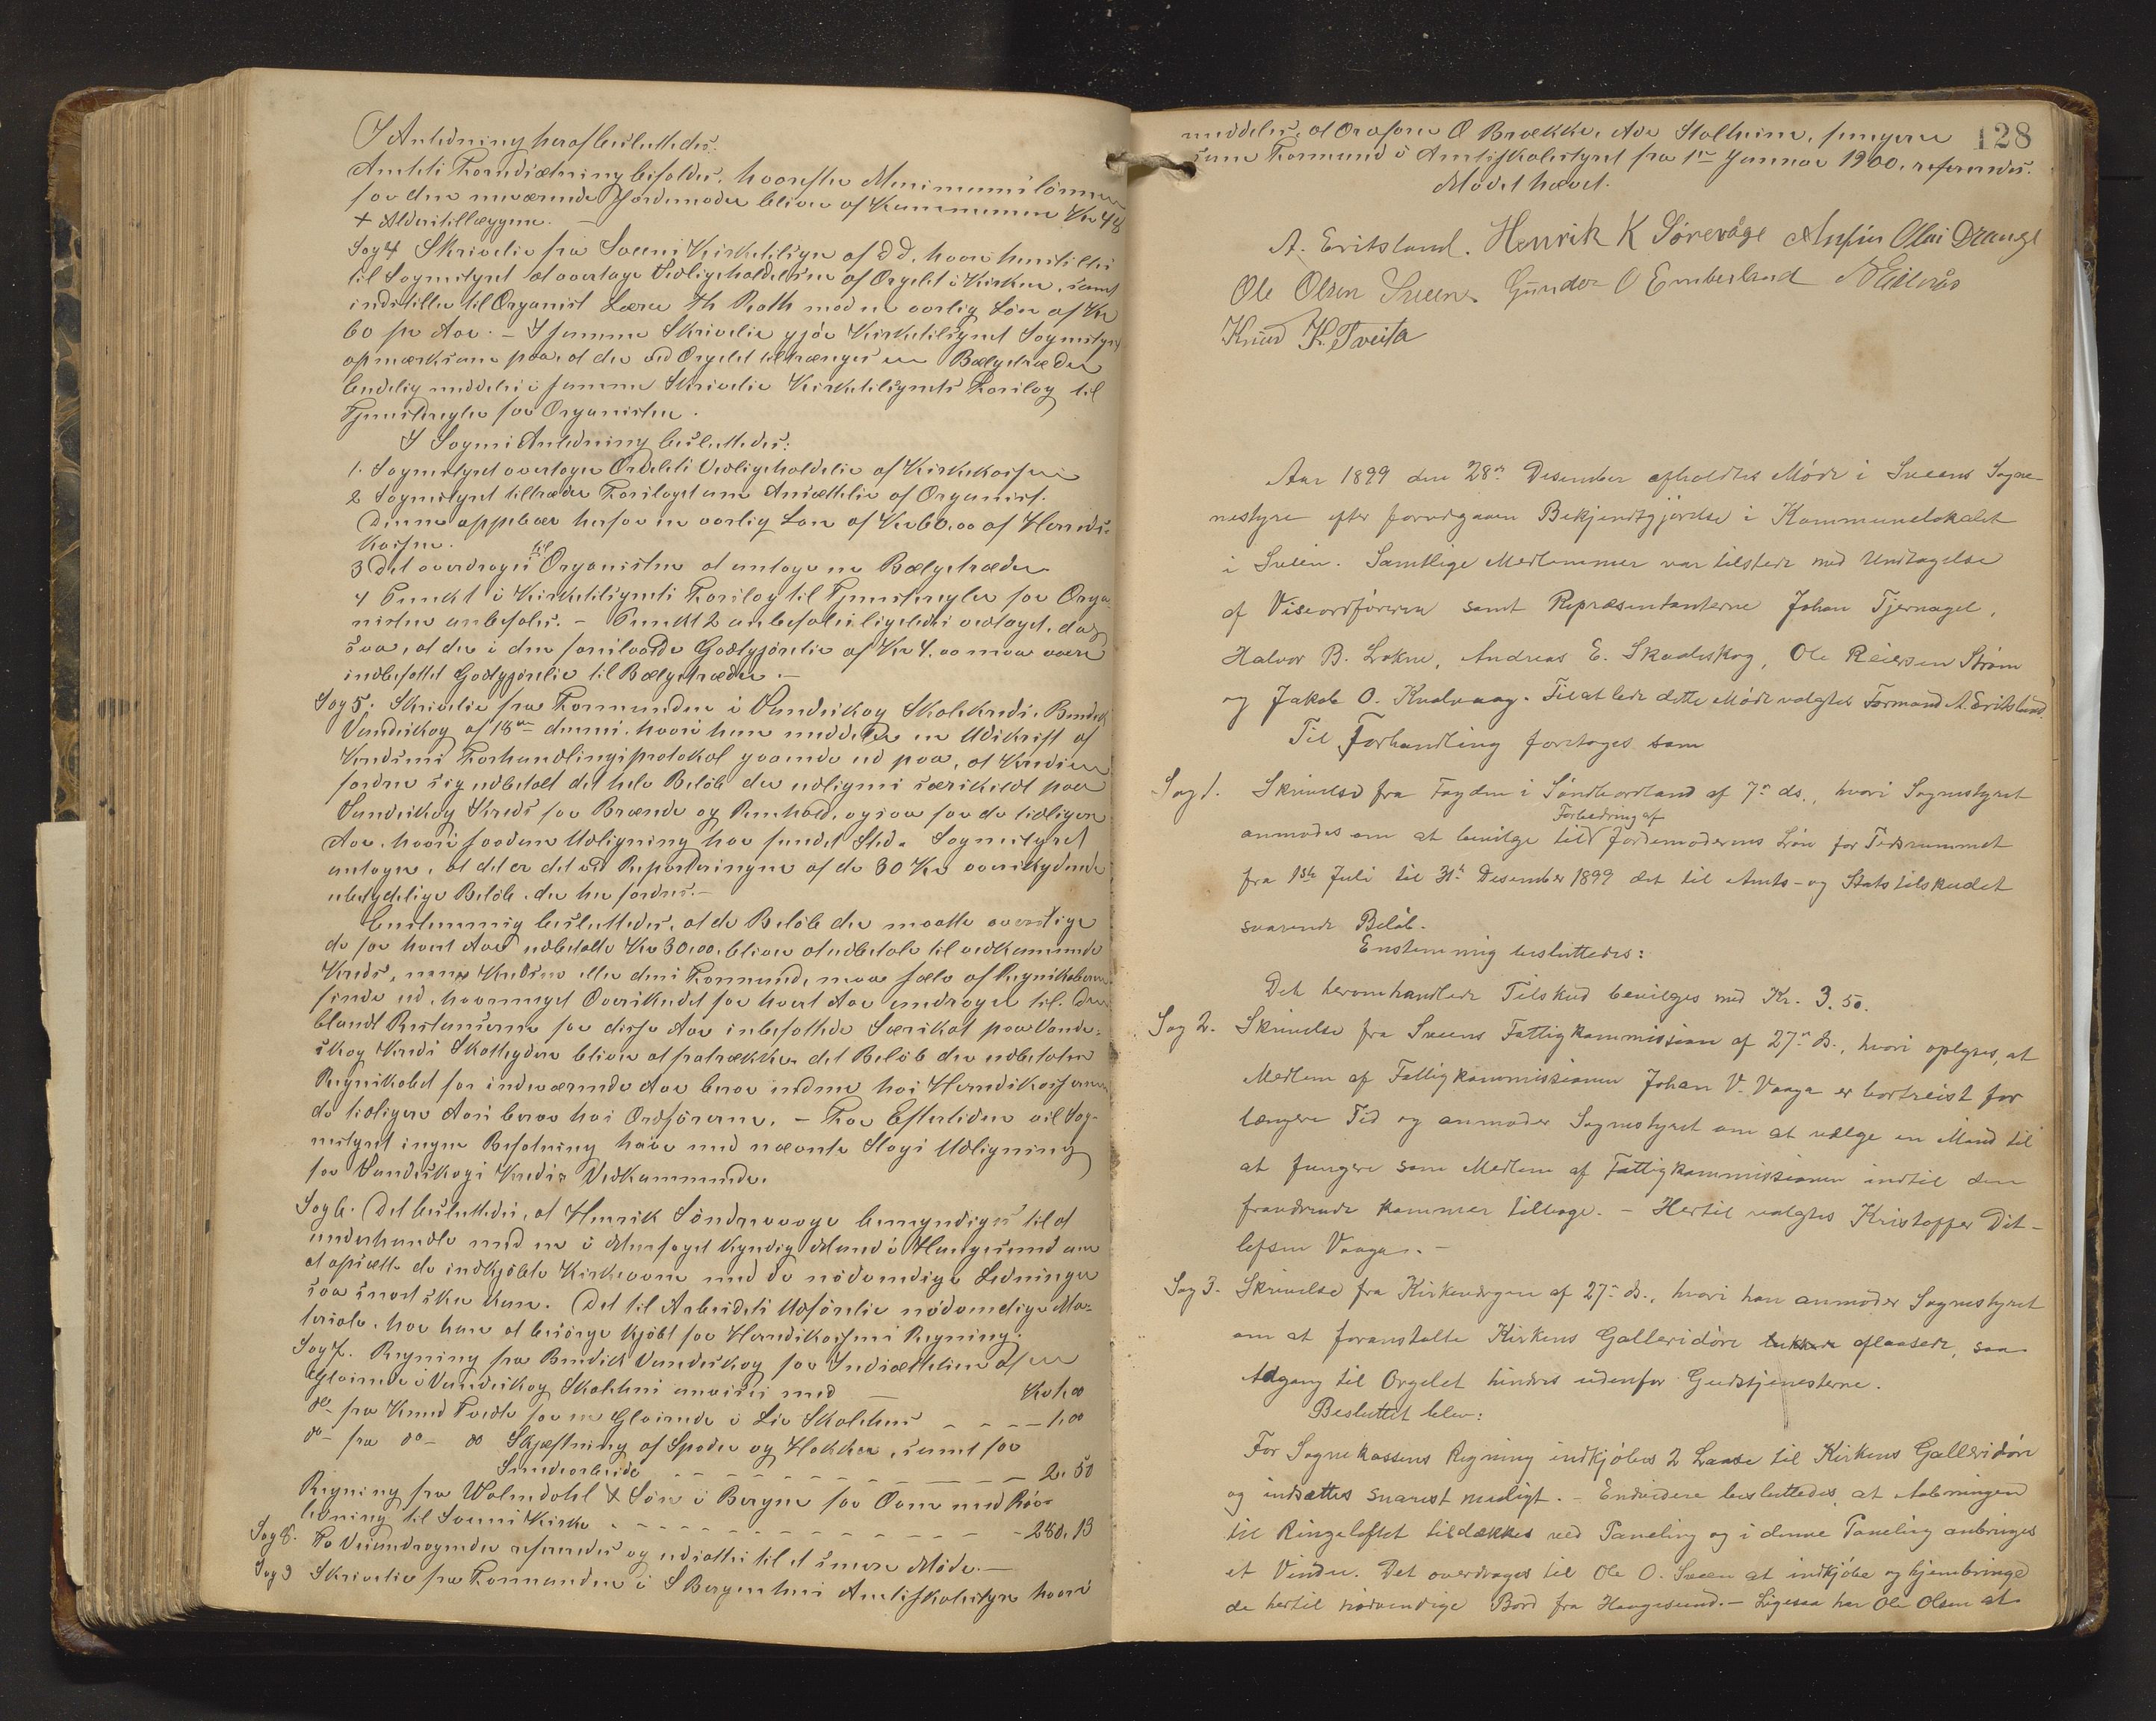 I Anledning heraf besluttedes:
Amtets Foranstaltning befoldes, hvorefter Minimumslönnen
for den nuværende Jordemoder bliver af Kommunen Kr 48
+ Alderstillæggene.
Sag 4 Skrivelse fra Sveens Kirketilsyn af D.D. hvori henstilles
til Sognestyret at overtage Vedligeholdelsen af Orgelet i Kirken, samt
indstiller til Organist Lærer Th Rath mod en aarlig Løn af Kr
60 pr Aar. – I samme Skrivelse gjör Kirketilsynet Sognestyret
opmærksom paa, at der ved Orgelet tiltrænges en Bælgetræder
Endelig meddeles i samme Skrivelse Kirketilsynets Forslag til
Tjenstregler for Organisten.
I Sagens Anledning besluttedes:
1. Sognestyret overtager Orgelets Vedligeholdelse af Kirkekassen
2 Sognestyret tiltræder Forslaget om Ansættelse af Organist.
Denne oppebær herfor en aarlig Løn af Kr 60,00 af Herreds-
kassen.
3 Det overdrages til Organisten at antage en Bælgetræder
4 Punkt i Kirketilsynets Forslag til Tjenstregler for Orga-
nisten anbefales. – Punkt 2 anbefales ligeledes vedtaget, dog
saa, at der i den foreslaaede Godtgjörelse af Kr 4.00 maa være
indbefattet Godtgjörelse til Bælgetræder. –
Sag 5. Skrivelse fra Formanden i Vandeskog Skolekreds, Bendik
Vandeskog af 18de dennes, hvori han meddeler en Udskrift af
Kredsens Forhandlingsprotokol gaaende ud paa, at Kredsen
fordrer sig udbetalt det hele Belöb der udlignes særskildt paa
Vandeskog Kreds for Brænde og Renhold, ogsaa for de tidligere
Aar, hvori saadan Udligning har fundet Sted. Sognestyret
antager, at det er det ved Reparteringen af de 30 Kr overskydende
ubetydelige Belöb, der her fordres. –
Enstemmig besluttedes, at de Belöb der maatte overstige
de for hvert Aar udbetalte Kr 30.00, bliver at udbetale til vedkommende
Kreds, naar Kredsen eller dens Formand, maa selv af Regnskaberne
finde ud, hvormeget Overskudet for hvert Aar andraget til. Den
blandt Restanserne for disse Aar inbefattede Særskat paa Vande-
skog Kreds Skatteydere bliver at fratrække det Belöb der udbetales
Regnskabet for indeværende Aar beror endnu hos Herredskassereren
de tidligere Aars beror hos Ordføreren. – For Eftertiden vil Sog-
nestyret ingen Befatning have med nævnte Slags Udligning
for Vandeskogs Kreds Vedkommende.
Sag 6. Det besluttedes, at Henrik Söndrevaage bemyndiges til at
underhandle med en i Murfaget kyndig Mand i Haugesund om
at opsætte de indkjöbte Kirkeovne med de nödvendige Ledninger
saa snart ske kan. Det til Arbeidets Udförelse nödvendige Ma-
teriale, har han at besörge kjöbt for Herredskassens Regning.
Sag 7. Regning fra Bendik Vandeskog for Indsættelse af en
Glasrude i Vandeskog Skolehus anvises med — Kr 1.00
do fra Knud Tveita for en Glasrude i Lie Skolehus - - - 1.00
do – fra do – do Skjæftning af Spader og Hakker, samt for
Smedearbeide - - - - - - - - - 2.50
Regning fra Walendahl & Sön i Bergen for Ovne med Rör-
ledning til Sveens Kirke - - - - - - - - - - 280.13
Sag 8. To Veiandragender refereredes og udsattes til et senere Möde. —
Sag 9 Skrivelse fra Formanden i S Bergenhus Amtsskolestyre hvori
128
meddeles, at Ordförer O Brække, Adr Stalheim, fungerer
som Formand i Amtsskolestyret fra 1ste Januar 1900, refereredes.
Mödet hævet.
A. Erikslund. Henrik K Sørevåge Anfin Olai Drange
Ole Olsen Sveen. Gunder O Emberland
Knud K. Tveita
Aar 1899 den 28de Desember afholdtes Möde i Sveens Sogne-
nestyre efter forudgaaen Bekjendtgjørelse i Kommunelokalet
i Sveen. Samtlige Medlemmer var tilstede med Undtagelse
af Viseordföreren samt Repræsentanterne Johan Tjernagel,
Halvor B. Lokne, Andreas E. Skaaleskog, Ole Reiersen Strøm
og Jakob O. Kvalvaag. Til at lede dette Möde valgtes Formand A. Erikslund.
Til Forhandling foretoges som
Sag 1. Skrivelse fra Fogden i Söndhordland af 7de ds., hvori Sognestyret
anmodes om at bevilge til Forbedring af Jordemoderens Løn for Tidsrummet
fra 1ste Juli til 31te Desember 1899 det til Amts- og Statstilskudet
svarende Beløb.
Enstemmig besluttedes:
Det heromhandlede Tilskud bevilges med Kr. 3.50.
Sag 2. Skrivelse fra Sveens Fattigkommission af 27de ds., hvori oplyses, at
Medlem af Fattigkommissionen Johan V. Vaage er bortreist for
længere Tid og anmoder Sognestyret om at vælge en Mand til
at fungere som Medlem af Fattigkommissionen indtil den
fraværende kommer tilbage. – Hertil valgtes Kristoffer Dit-
lefsen Vaage. –
Sag 3. Skrivelse fra Kirkevergen af 27de ds., hvori han anmoder Sognestyret
om at foranstalte Kirkens Galleridöre lukkede aflaasede, saa
Adgang til Orgelet hindres udenfor Gudstjenesterne.
Besluttet blev:
For Sognekassens Regning indkjöbes 2 Laase til Kirkens Galleridøre
og indsættes snarest muligt. – Endvidere besluttedes, at Aabningen
til Ringeloftet tildækkes ved Paneling og i denne Paneling anbringes
et Vindu. Det overdrages til Ole O. Sveen at indkjöbe og hjembringe
de hertil nödvendige Bord fra Haugesund. – Ligesaa har Ole Olsen at